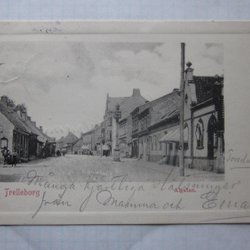 Trelleborg
Algatan.
Många hjärtliga hälsningar
från Mamma och Einar